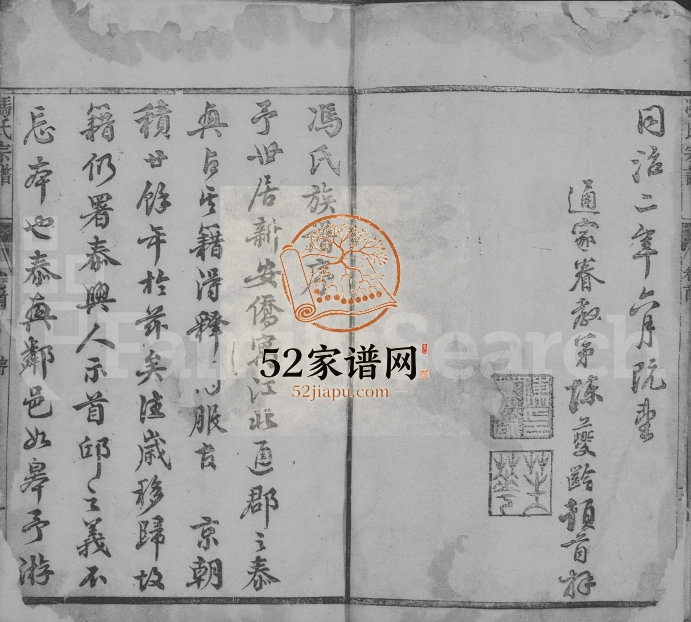 同治二年六月既望
通家眷教弟陳夔齡頓首拜
馮氏族譜序
予世居新安僑寓江北通郡之泰
興占籍得釋服官京朝
積廿餘年於茲矣往歲移歸故
籍仍署泰興人示首邱之義不
忘本也泰興鄰邑如皋予游
馮氏宗譜
52家谱网
52jiapu.com
FamilySearch